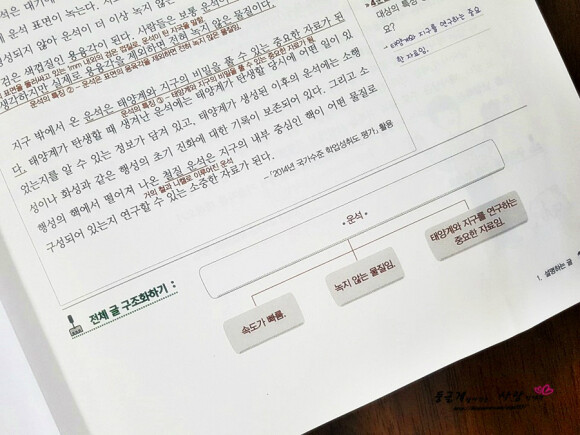 운석 표면이 녹는다. 사람들은
성되지 않아 운석이 더 이상 녹지 않은
검은 색깔인 용융각이 된다. 사람들은 보통 운석이
생각하지만 실제로 용융각을 제외하면 전혀 녹지 않은 물질이다.
운석의 특징 ② - 운석은 표면의 용융각을 제외하면 전혀 녹지 않은 물질임.
지구 밖에서 온 운석은 태양계와 지구의 비밀을 풀 수 있는 중요한 자료가 된
운석의 특징 ③ - 운석은 태양계와 지구의 비밀을 풀 수 있는 중요한 자료가 됨.
다. 태양계가 탄생할 때 생겨난 운석에는 태양계가 탄생할 당시에 어떤 일이 있
있는지를 알 수 있는 정보가 담겨 있고, 태양계가 생성된 이후의 운석에는 소행
성이나 화성과 같은 행성의 초기 진화에 대한 기록이 보존되어 있다. 그리고 소
행성의 핵에서 떨어져 나온 철질 운석은 지구의 내부 중심인 핵이 어떤 물질로
거의 철과 니켈로 이루어진 운석
구성되어 있는지 연구할 수 있는 소중한 자료가 된다.
- '2014년 국가수준 학업성취도 평가', 활용
대상의 특징
요?
- 태양계와 지구를 연구하는 중요
한 자료임.
전체 글 구조화하기 :
• 운석 •
속도가 빠름.
녹지 않는 물질임.
태양계와 지구를 연구하는
중요한 자료임.
1. 설명하는 글